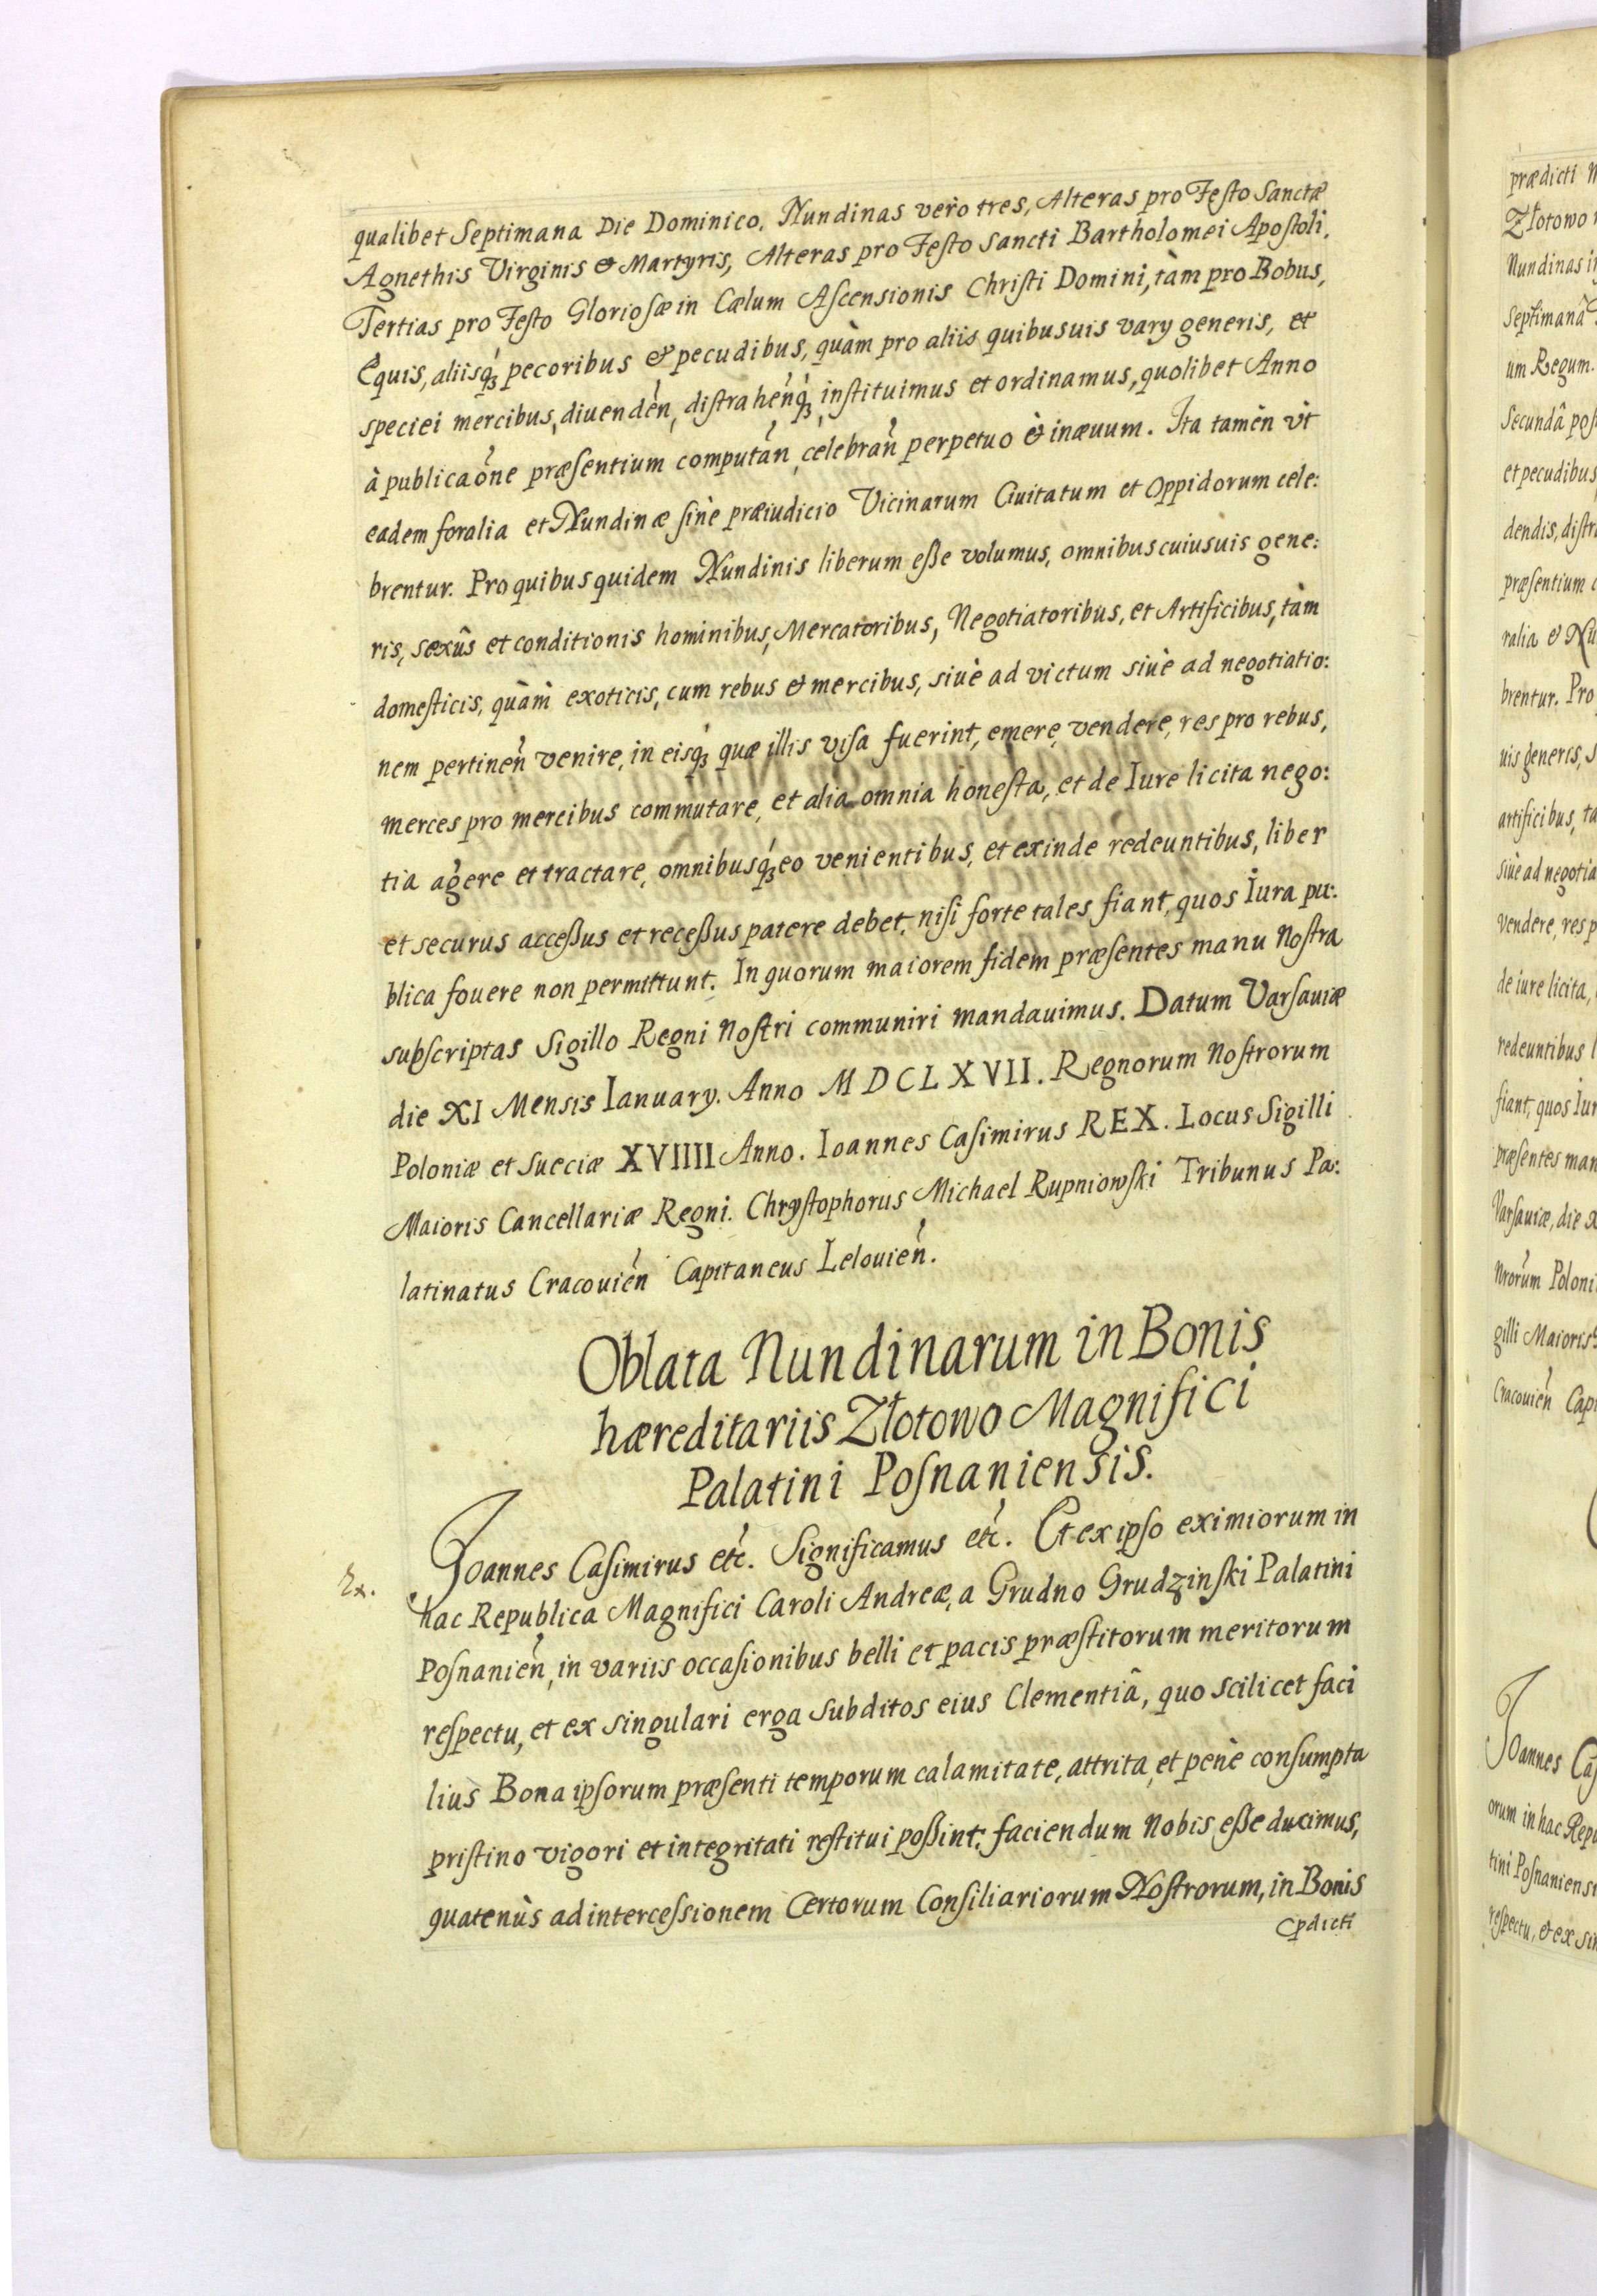 qualibet Septimana Die Dominico. Nundinas verò tres, Alteras pro Festo Sanctæ
Agnethis Virginis & Martyris, Alteras pro Festo Sancti Bartholomei Apostoli.
Tertias pro Festo Gloriosæ in Cælum Ascensionis Christi Domini, tàm pro Bobus,
Equis, aliisq́ꝫ pecoribus & pecudibus, quàm pro aliis quibusuis vary generis, et
speciei mercibus, diuendeń, distraheńq́ꝫ instituimus et ordinamus, quolibet Anno
à publicaońe præsentium computań, celebrań perpetuo & inæuum. Ita tamèn vt
eadem foralia et Nundinæ sinè præiudicio Vicinarum Ciuitatum et Oppidorum cele:
brentur. Pro quibus quidem Nundinis liberum eße volumus, omnibus cuiusuis gene:
ris, sexûs et conditionis hominibus, Mercatoribus, Negotiatoribus, et Artificibus, tàm
domesticis, quàm exoticis, cum rebus & mercibus, siuè ad victum siuè ad negotiatio:
nem pertineń venire, in eisq́ꝫ quæ illis visa fuerint, emere, vendere, res pro rebus,
merces pro mercibus commutare, et alia omnia honesta, et de Iure licita nego:
tia agere et tractare, omnibusq́ꝫ eo venientibus, et exinde redeuntibus, liber
et securus acceßus et receßus patere debet, nisi forte tales fiant, quos Iura pu:
blica fouere non permittunt. In quorum maiorem fidem præsentes manu Nostra
subscriptas Sigillo Regni Nostri communiri mandauimus. Datum Varsauiæ
die XI Mensis Ianuary. Anno MDCLXVII. Regnorum Nostrorum
Poloniæ et Sueciæ XVIIII Anno. Ioannes Casimirus REX. Locus Sigilli
Maioris Cancellariæ Regni. Chrystophorus Michael Rupniowski Tribunus Pa:
latinatus Cracouień Capitaneus Lelouień.
Oblata Nundinarum in Bonis
hæreditariis Złotowo Magnifici
Palatini Posnaniensis.
Ioannes Casimirus etć. Significamus etć. Et ex ipso eximiorum in
Ex. hac Republica Magnifici Caroli Andreæ, a Grudno Grudzinski Palatini
Posnanień, in variis occasionibus belli et pacis præstitorum meritorum
respectu, et ex singulari erga subditos eius Clementiâ, quo scilicet faci
lius Bona ipsorum præsenti temporum calamitate, attrita, et penè consumpta
pristino vigori et integritati restitui poßint, faciendum Nobis eße duximus,
quatenùs ad intercessionem Certorum Consiliariorum Nostrorum, in Bonis
prædicti
Złotowo
Nundinas
Septimanâ
um Regum.
Secundâ
et pecudibus
dendis,
præsentium
ralia & Nu
brentur. Pro
uis generis,
artificibus, ta
siuè ad negotia
vendere, res p
de iure licita,
redeuntibus l
fiant, quos Iur
præsentes man
Varsauiæ, die
Nrorum Poloni
gilli Maioris
Cracouień Capi
Ioannes Cas
orum in hac Repu
tini Posnaniens
respectu, & ex sin